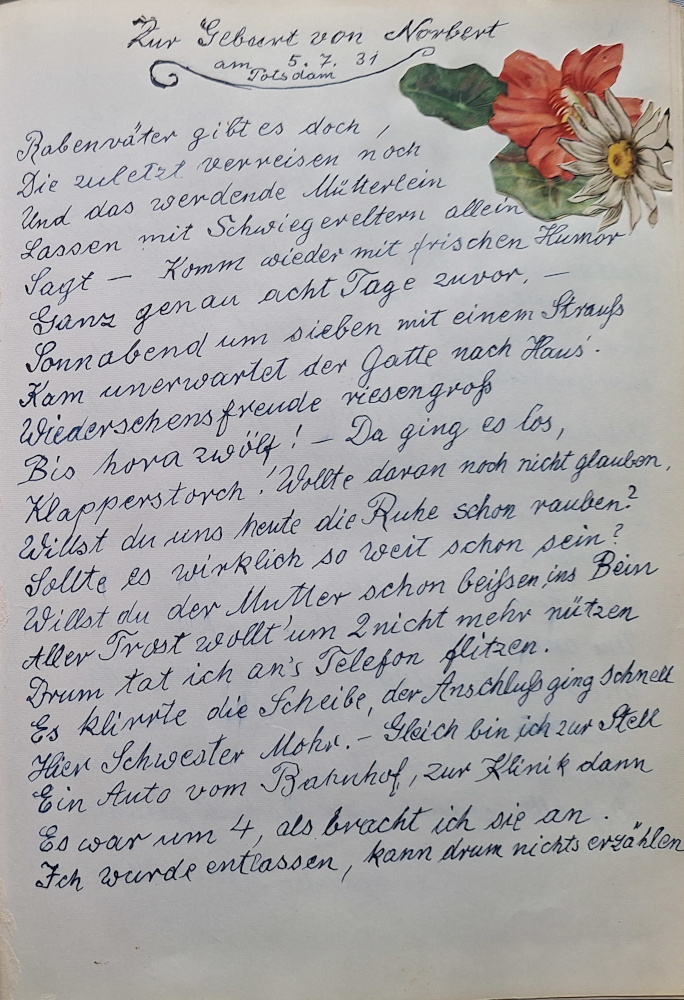 Zur Geburt von Norbert
am 5. 7. 31
Potsdam
Rabenväter gibt es doch,
Die zuletzt verreisen noch
Und das werdende Mütterlein
Lassen mit Schwiegereltern allein
Sagt — Komm wieder mit frischen Humor
Ganz genau acht Tage zuvor. —
Sonnabend um sieben mit einem Strauß
Kam unerwartet der Gatte nach Haus'.
Wiedersehensfreude riesengroß
Bis hora zwölf! — Da ging es los,
Klapperstorch! Wollte daran noch nicht glauben,
Willst du uns heute die Ruhe schon rauben?
Sollte es wirklich so weit schon sein?
Willst du der Mutter schon beißen ins Bein
Aller Trost wollt' um 2 nicht mehr nützen
Drum tat ich an's Telefon flitzen.
Es klirrte die Scheibe, der Anschluß ging schnell
Hier Schwester Mohr. — Gleich bin ich zur Stell
Ein Auto vom Bahnhof, zur Klinik dann
Es war um 4, als bracht ich sie an.
Ich wurde entlassen, kann drum nichts erzählen